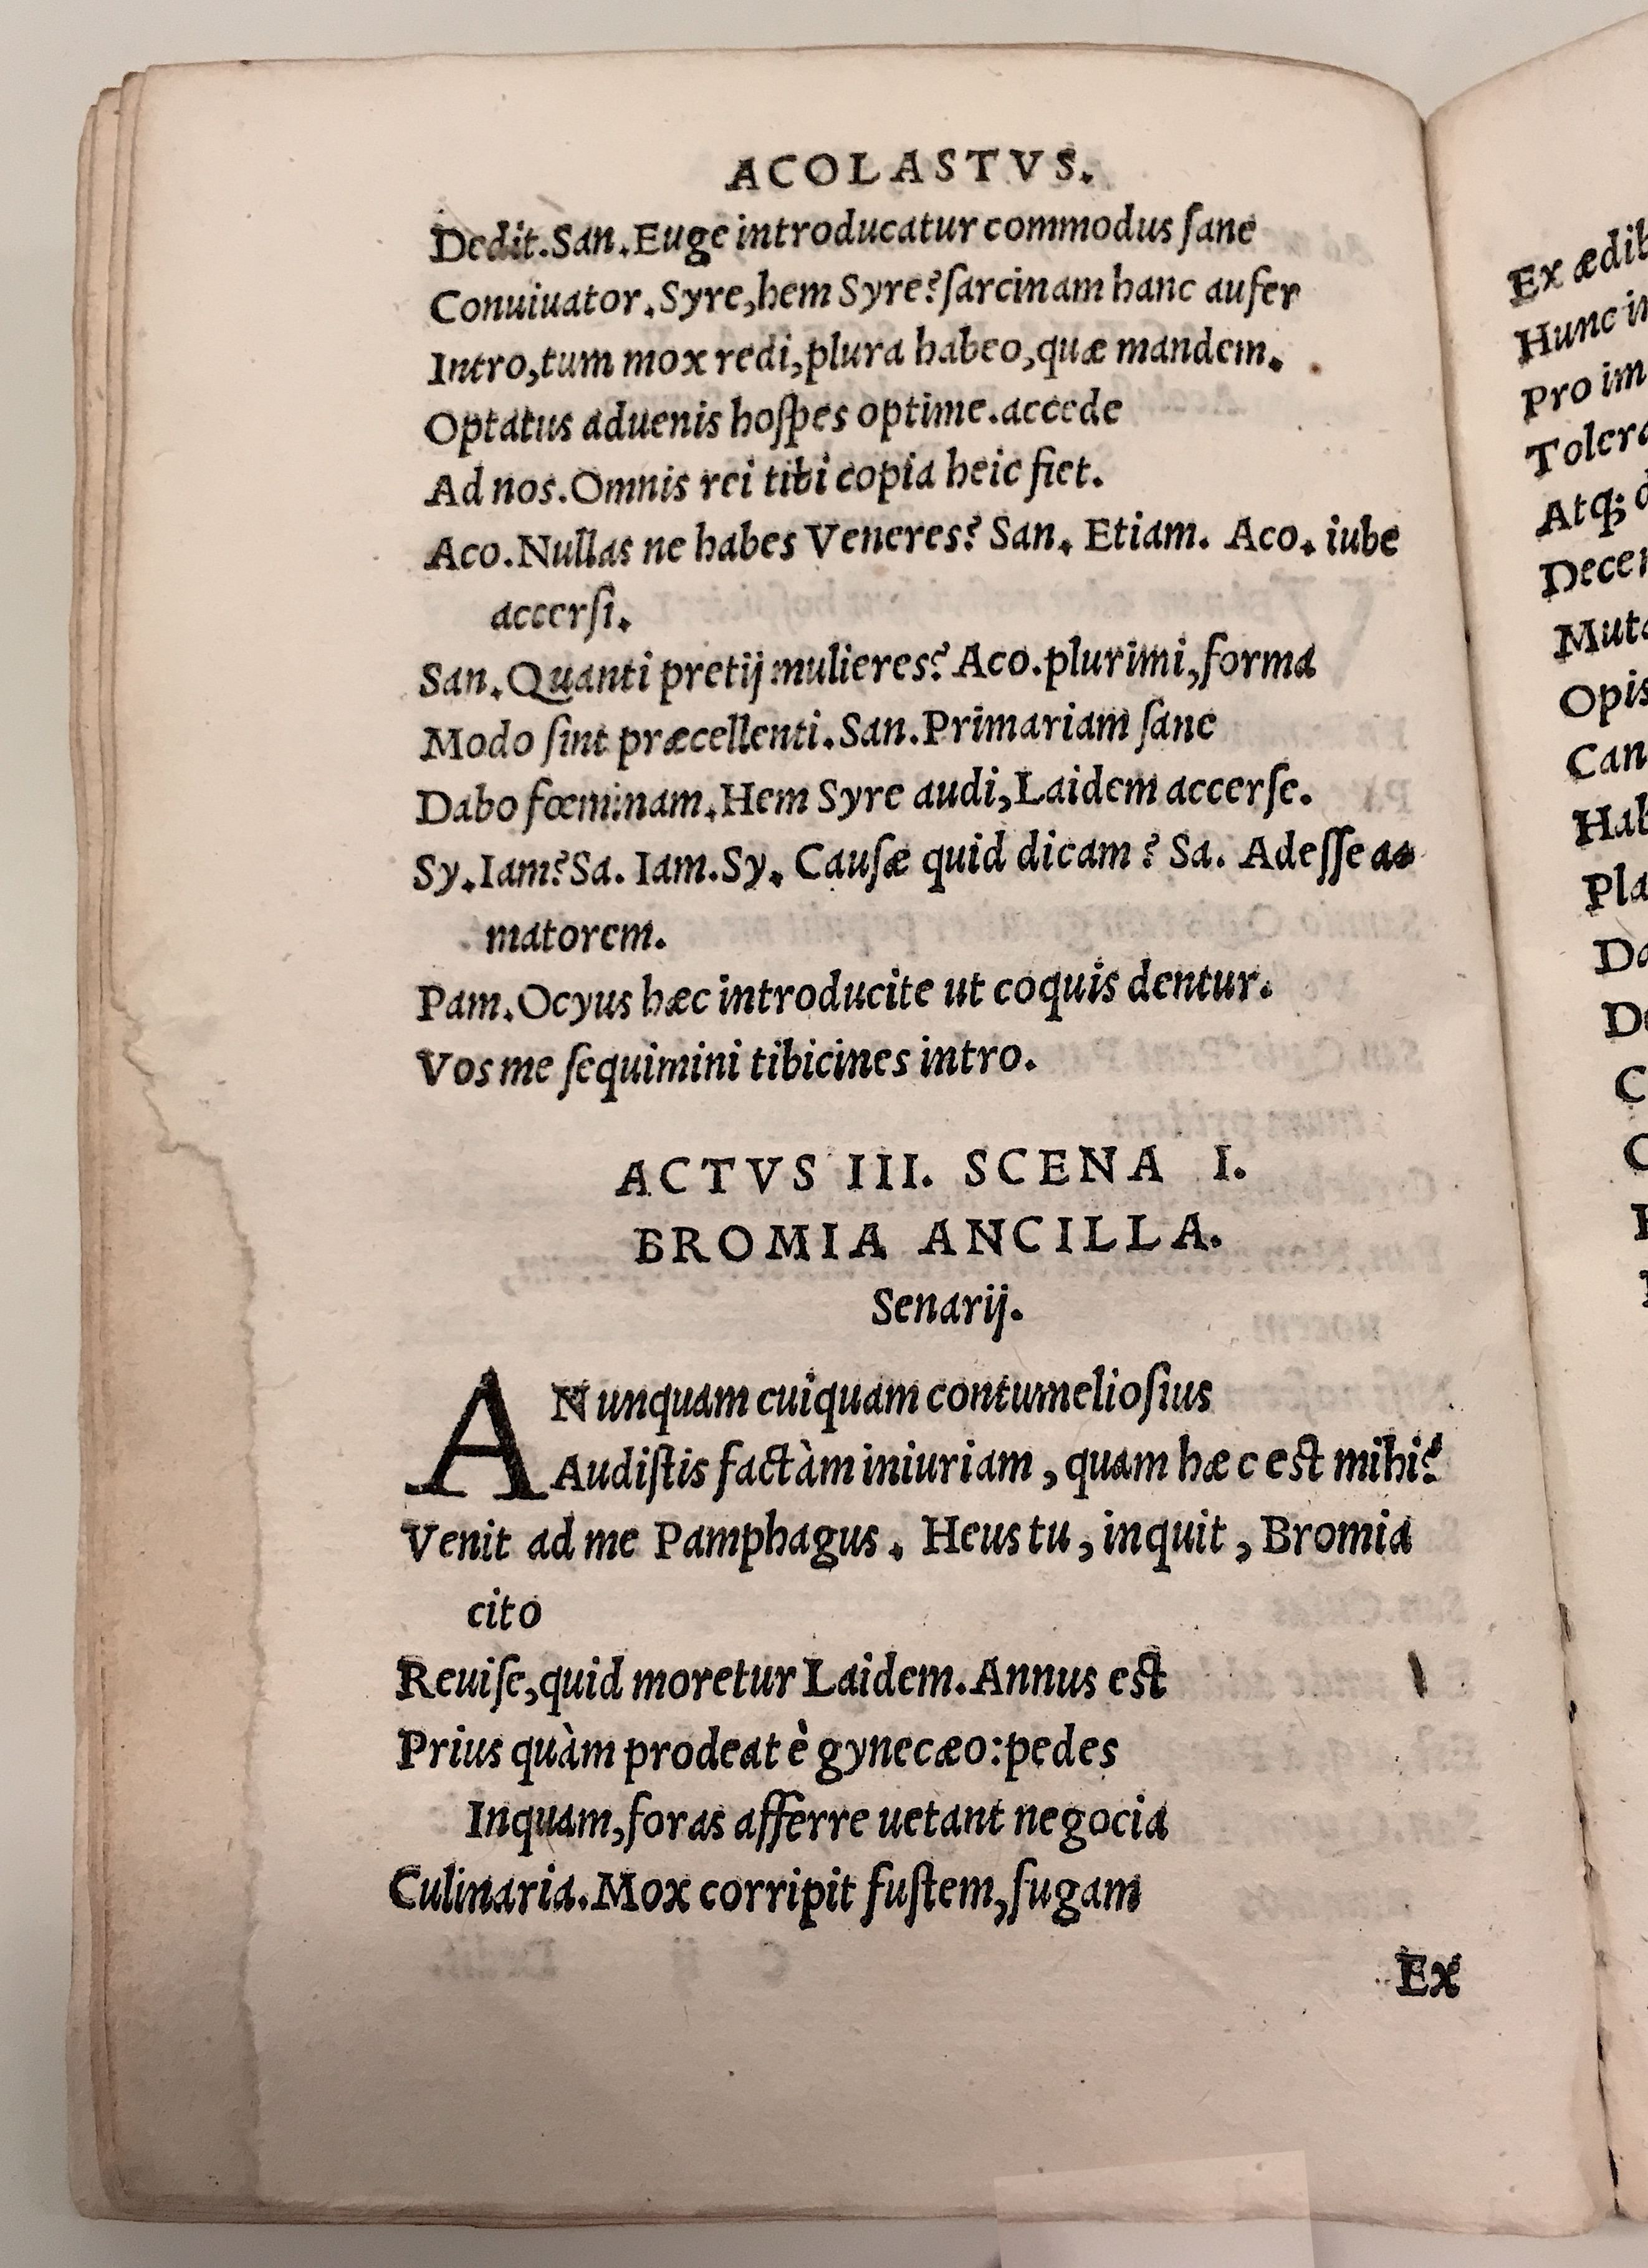 ACOLASTVS.
Dedit.San.Euge introducatur commodus ſane
Conuiuator.Syre,hem Syre?ſarcinam hanc aufer
Intro,tum mox redi,plura habeo,quæ mandem.
Optatus aduenis hoſpes optime.accede
Ad nos.Omnis rei tibi copia heic fiet.
Aco.Nullas ne habes Veneres? San. Etiam. Aco. iube
accerſi.
San.Quanti pretij mulieres? Aco.plurimi,forma
Modo ſint præcellenti.San.Primariam ſane
Dabo fœminam.Hem Syre audi,Laidem accerſe.
Sy.Iam?Sa. Iam.Sy. Cauſæ quid dicam? Sa. Adeſſe a-
matorem.
Pam.Ocyus hæc introducite ut coquis dentur.
Vos me ſequimini tibicines intro.
ACTVS III. SCENA I.
BROMIA ANCILLA.
Senarij.
AN unquam cuiquam contumelioſius
Audiſtis factàm iniuriam, quam hæ c est mihi?
Venit ad me Pamphagus. Heus tu, inquit, Bromia
cito
Reuiſe,quid moretur Laidem.Annus est
Prius quàm prodeat è gynecæo:pedes
Inquam,foras afferre uetant negocia
Culinaria.Mox corripit fuſtem,fugam
Ex
Ex ædib
Hunc in
Pro im
Tolera
Atq; d
Decer
Muta
Opis
Can
Hab
Pla
Da